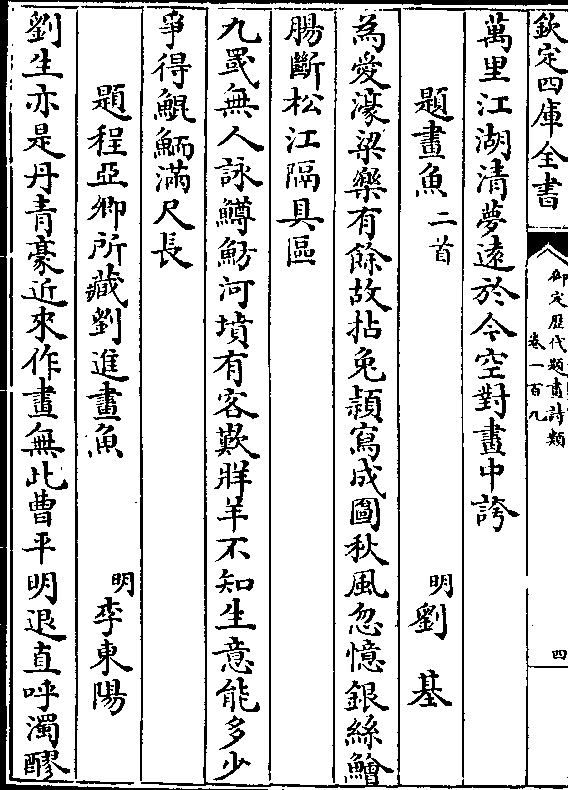 欽定四庫全書
御定歷代題畫詩類
卷一百九
四
萬里江湖清夢遠於今空對畫中誇
題畫魚二首
明劉基
為愛濠梁樂有餘故拈兔穎寫成圖秋風忽憶銀絲鱠
腸斷松江隔具區
九罭無人詠鱒魴河墳有客歎牂羊不知生意能多少
爭得鯤鮞滿尺長
題程亞卿所藏劉進畫魚
明李東陽
劉生亦是丹青豪近來作畫無此曹平明退直呼濁醪